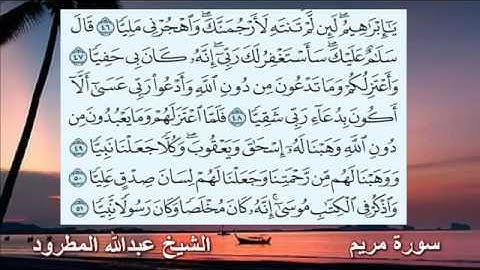 يَٰٓإِبْرَٰهِيمُ ۖ لَئِن لَّمْ تَنتَهِ لَأَرْجُمَنَّكَ ۖ وَٱهْجُرْنِى مَلِيًّا ٤٦ قَالَ
سَلَٰمٌ عَلَيْكَ ۖ سَأَسْتَغْفِرُ لَكَ رَبِّىٓ ۖ إِنَّهُۥ كَانَ بِى حَفِيًّا ٤٧
وَأَعْتَزِلُكُمْ وَمَا تَدْعُونَ مِن دُونِ ٱللَّهِ وَأَدْعُوا۟ رَبِّى عَسَىٰٓ أَلَّآ
أَكُونَ بِدُعَآءِ رَبِّى شَقِيًّا ٤٨ فَلَمَّا ٱعْتَزَلَهُمْ وَمَا يَعْبُدُونَ مِن
دُونِ ٱللَّهِ وَهَبْنَا لَهُۥٓ إِسْحَٰقَ وَيَعْقُوبَ ۖ وَكُلًّا جَعَلْنَا نَبِيًّا ٤٩
وَوَهَبْنَا لَهُم مِّن رَّحْمَتِنَا وَجَعَلْنَا لَهُمْ لِسَانَ صِدْقٍ عَلِيًّا ٥٠
وَٱذْكُرْ فِى ٱلْكِتَٰبِ مُوسَىٰٓ ۚ إِنَّهُۥ كَانَ مُخْلَصًا وَكَانَ رَسُولًا نَّبِيًّا ٥١
سورة مريم
الشيخ عبدالله المطرود